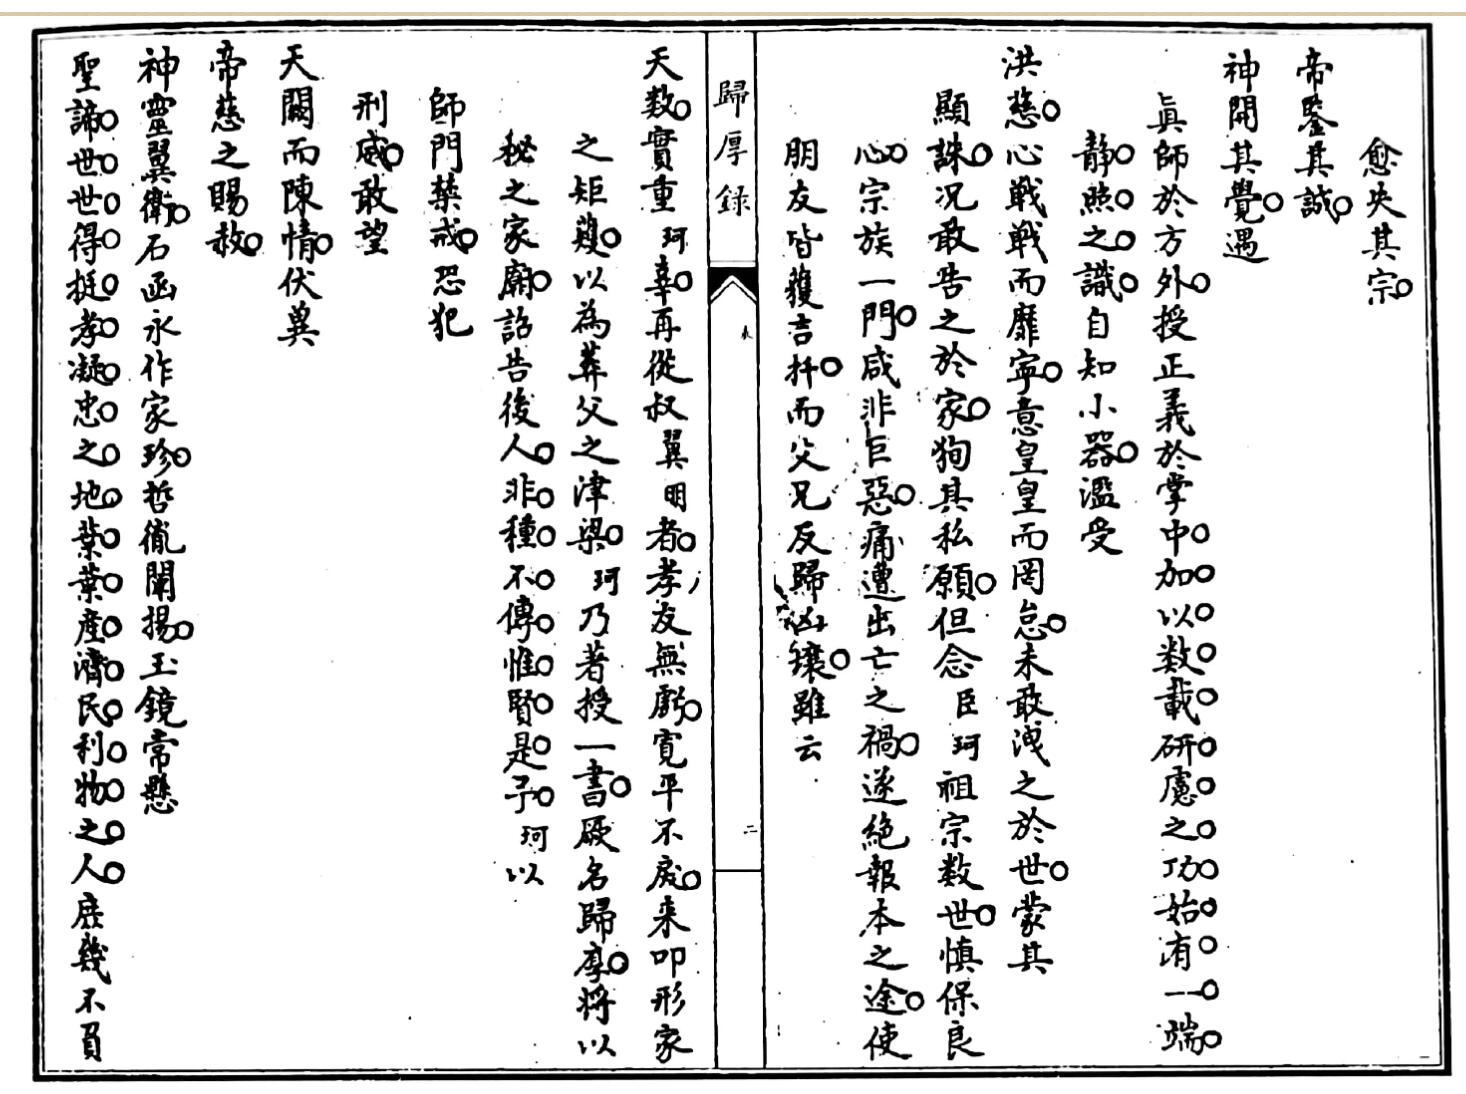 愈失其宗
帝鑒其誠
神開其覺遇
真師於方外授正義於掌中加以数載研慮之功始有一端
静照之識自知小器濫受
洪慈心戰戰而靡寧意皇皇而罔怠未敢洩之於世蒙其
顯誅况敢告之於家狥其私願但念臣珂祖宗数世慎保良
心宗族一門咸非巨惡痛遭出亡之禍遂絶報本之途使
朋友皆獲吉扦而父兄反歸凶穰雖云
歸厚録
二
天数實重珂辜再從叔翼明者孝友無虧寛平不戾来叩形家
之矩矱以為葬父之津梁珂乃著授一書厥名歸厚将以
秘之家廟詔告後人非種不傳惟賢是予珂以
師門禁戒恐犯
刑威敢望
天闕而陳情伏冀
帝慈之賜赦
神靈翼衛石函永作家珍哲胤闡揚玉鏡常懸
聖諦世世得挺孝凝忠之地葉葉産濟民利物之人庶幾不負